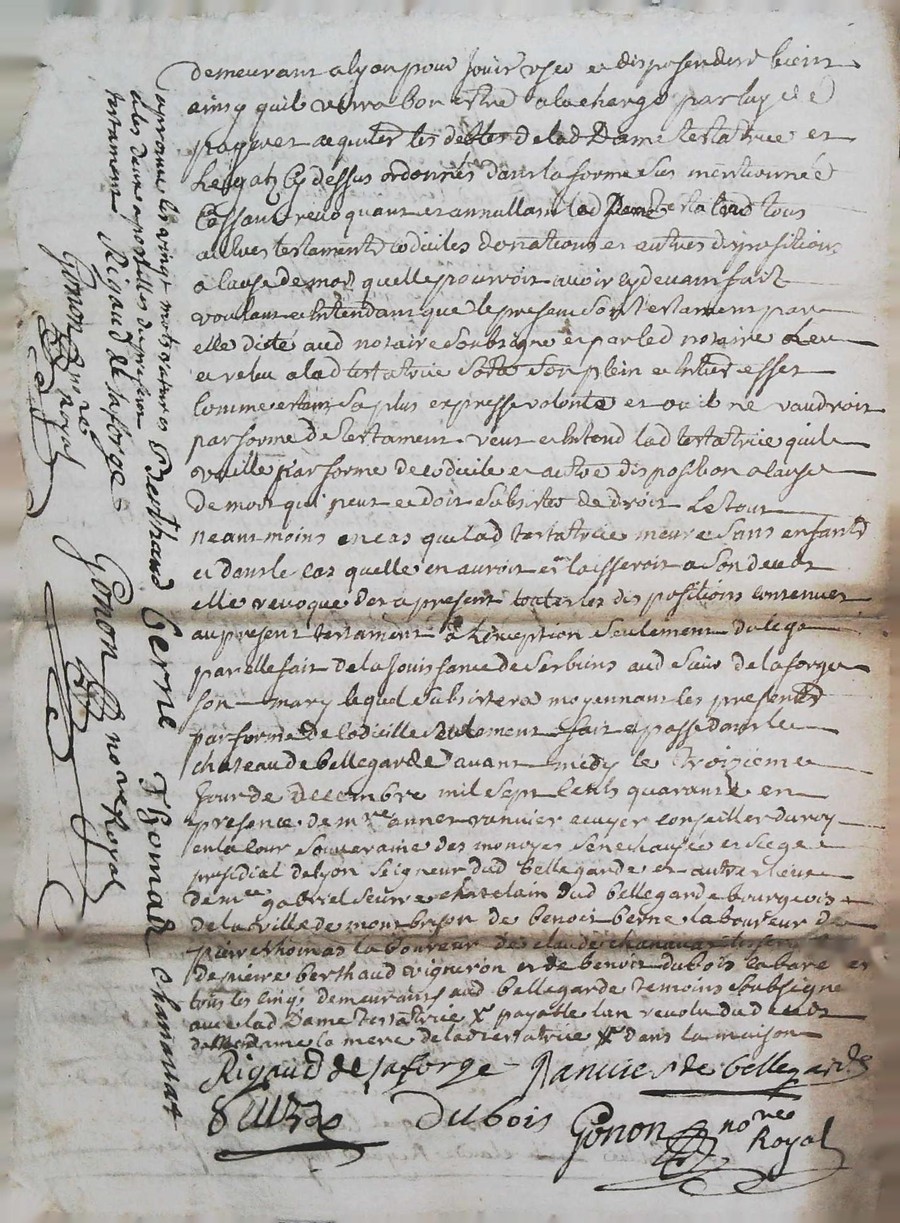 demeurant a lyon pour Jouir user et disposer desd biens
ainsy quil verra bon estre a la charge par luy de
payer et aquiter les debtes de lad Dame testatrice et
les gatz cy dessus ordonnés dans la forme sus mentionnée
Cassant revoquant et annullant lad Dame testatrice tous
autres testaments codiciles donations et autres dispositions
a cause de mort quelle pourroit avoir cy devant fait
voulant et Entendant que le present son testament par
elle dicté aud notaire soubsigné et par led notaire leu
et releu a lad testatrice sorte son plein et Entier effet
Comme estant sa plus expresse volonté et ou il ne vaudroit
par forme de testament veut et Entend lad testatrice quil
vaille par forme de codicile et autre disposition a cause
de mort qui peut et doit subsister de droit Le tout
neantmoins en cas que lad testatrice meure sans enfants
et dans le cas quelle en auroit et en laisseroit a son deces
elle revoque des a present toutes les dispositions contenues
au present testament a lexception seulement du lega
par elle fait de la Jouissance de ses biens aud sieur de laforge
son mary lequel subsistera moyennant les presentes
par forme de codicille seulement fait et passé dans le
chateau de bellegarde avant midy le Troizieme
Jour de decembre mil sept cents quarante en
presence de mre anne ranvier ecuyer conseiller du roy
en la cour souveraine des monoyes senechaucée et siege
presidial de lyon seigneur dud bellegarde et autres lieux
de mre gabriel seurre chatelain dud bellegarde bourgeois
de la ville de montbrison de benoit berne laboureur de
pierre thomas laboureur de claude chanavat
de pierre berthaud vigneron et de benoit dubois
tous les cinq demeurants aud bellegarde temoins soubsigné
avec lad Dame testatrice x payable lan revolu du deces
de Madame la mere de lad testatrice x dans la maison
Rigaud de laforge Ranvier de bellegarde
Seurre Dubois Gonon nore Royal
aprouvé les vingt mots ratures Berthaud berne Thomas Chanavat
et les deux apostilles du present
testament Rigaud de laforge Gonon nore Royal
Gonon nore Royal